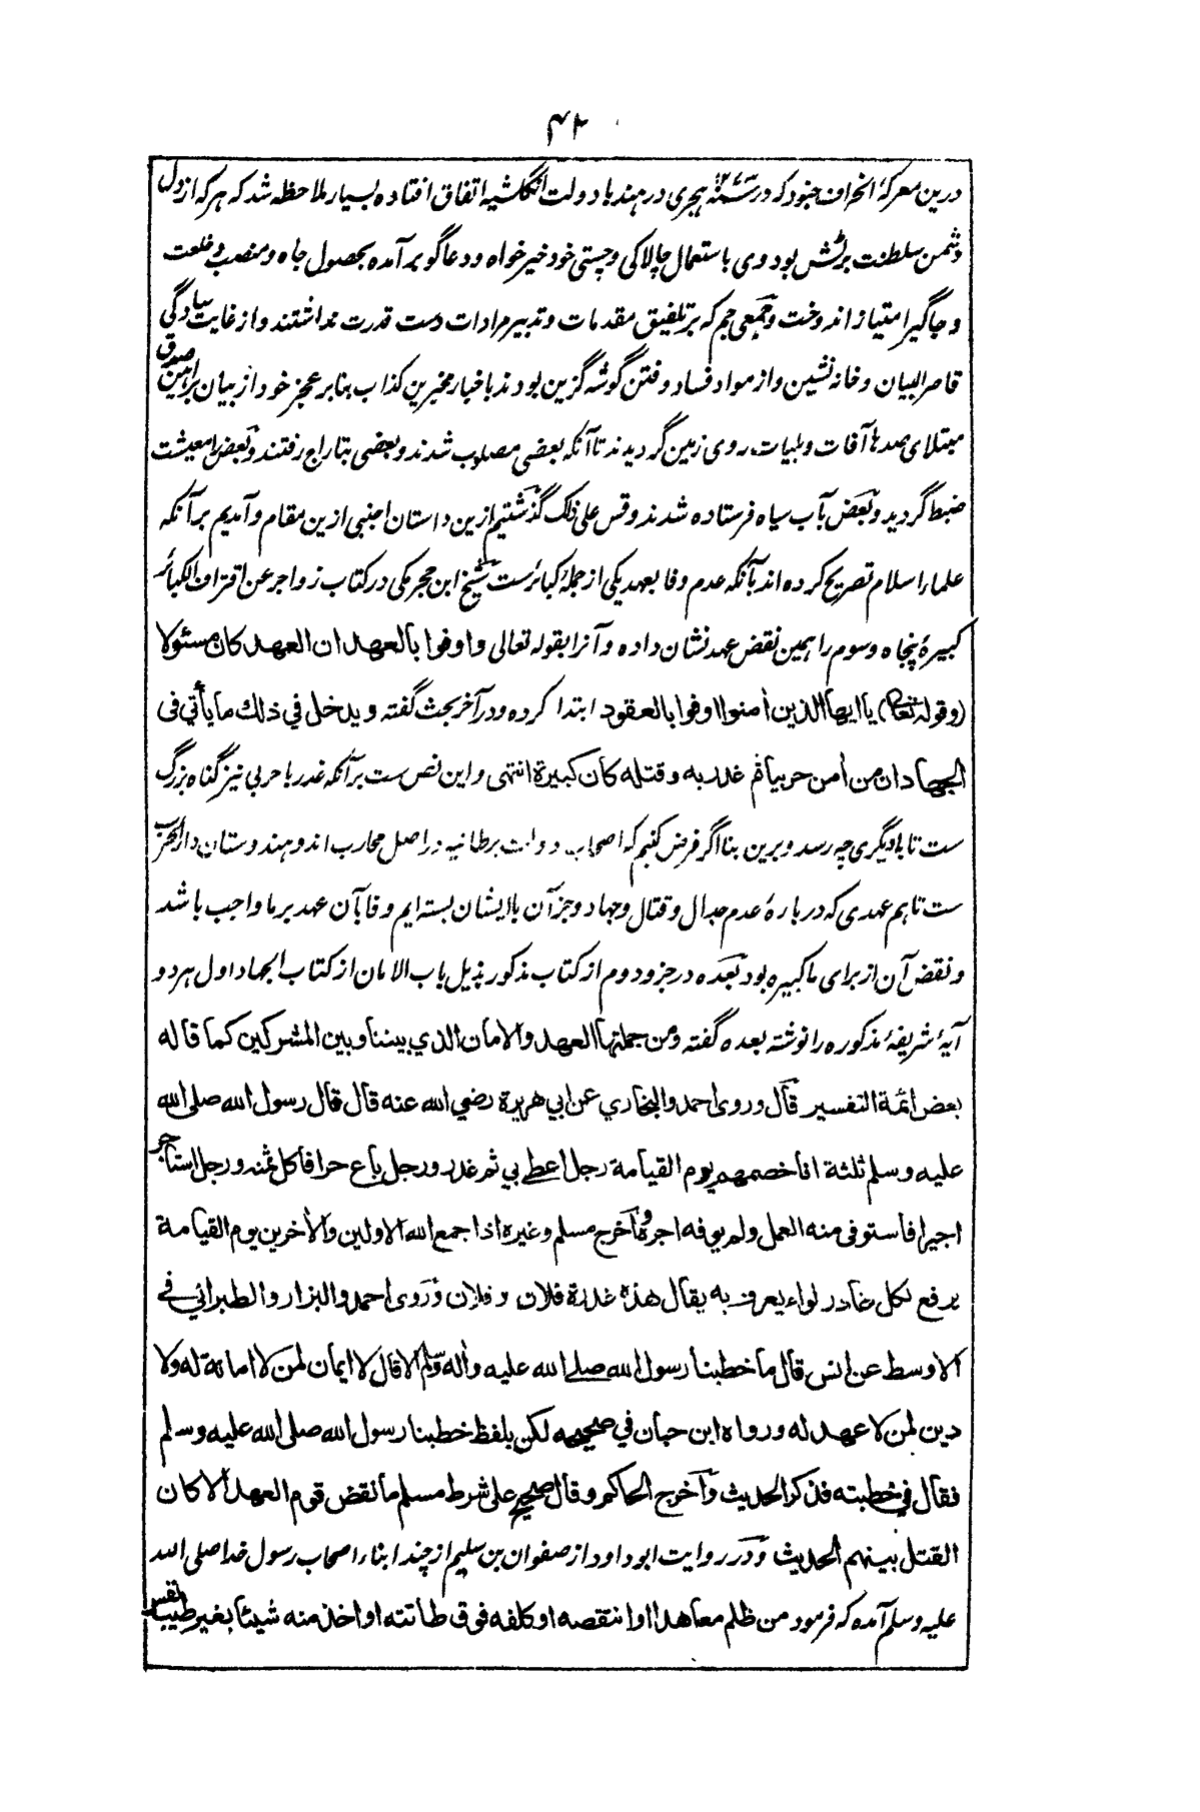 ۴۲
درین معرکهٔ انحراف جنود که در سنه ۱۲۷۳ هجری در هند با دولت انگلشیه اتفاق افتاده بسیار ملاحظه شد که هر که از دل
دشمن سلطنت برٹش بود وی باستعمال چالاکی و چستی خود خیرخواه و دعاگو برآمده بحصول جاه و منصب و خلعت
و جاگیر امتیاز اندوخت و جمعی جم که بر تلفیق مقدمات و تدبیر مرادات دست قدرت نداشتند و از غایت سادگی
قاصر البیان و خانه نشین و از مواد فساد و فتن گوشه گزین بودند باخبار مخبرین کذاب بنابر عجز خود از بیان براهین صدق
مبتلای صدها آفات و بلیات روی زمین گردیدند تا آنکه بعضی مصلوب شدند و بعضی بتاراج رفتند و بعض را معیشت
ضبط گردید و بعض بآب سیاه فرستاده شدند وقس علی ذلک گذشتیم ازین داستان اجنبی ازین مقام و آمدیم بر آنکه
علماء اسلام تصریح کرده اند بآنکه عدم وفا بعهد یکی از جملهٔ کبائرست شیخ ابن حجر مکی در کتاب زواجر عن اقتراف الکبائر
کبیرهٔ پنجاه و سوم را همین نقض عهد نشان داده و آنرا بقوله تعالی واوفوا بالعهد ان العهد کان مسئولا
(وقوله تعالی) یا ایها الذین اٰمنوا اوفوا بالعقود ابتدا کرده و در آخر بحث گفته ویدخل في ذلك ما یأتي في
الجهاد ان من أمن حربیا ثم غدر به وقتله کان کبیرة انتهی و این نص ست بر آنکه غدر با حربی نیز گناه بزرگ
ست تا با دیگری چه رسد و برین بنا اگر فرض کنیم که اصحاب دولت برطانیه در اصل محارب اند و هندوستان دار الحرب
ست تاهم عهدی که دربارهٔ عدم جدال و قتال و جهاد و جز آن با ایشان بسته ایم وفا بآن عهد بر ما واجب باشد
و نقض آن از برای ما کبیره بود بعده در جزو دوم از کتاب مذکور بذیل باب الامان از کتاب الجهاد اول هر دو
آیهٔ شریفهٔ مذکوره را نوشته بعده گفته ومن جملتها العهد والامان الذي بیننا وبین المشرکین کما قاله
بعض ائمة التفسیر قال وروی احمد والبخاري عن ابي هریرة رضي الله عنه قال قال رسول الله صلی الله
علیه وسلم ثلثة انا خصمهم یوم القیامة رجل اعطی بي ثم غدر ورجل باع حرا فاکل ثمنه ورجل استاجر
اجیرا فاستوفی منه العمل ولم یوفه اجره واخرج مسلم وغیره اذا جمع الله الاولین والاٰخرین یوم القیامة
یرفع لکل غادر لواء یعرف به یقال هذه غدرة فلان وفلان وروی احمد والبزار والطبراني في
الاوسط عن انس قال ما خطبنا رسول الله صلی الله علیه واٰله وسلم الا قال لا ایمان لمن لا امانة له ولا
دین لمن لا عهد له ورواه ابن حبان في صحیحه لکن بلفظ خطبنا رسول الله صلی الله علیه وسلم
فقال في خطبته فذکر الحدیث واخرج الحاکم وقال صحیح علی شرط مسلم ما نقض قوم العهد الا کان
القتل بینهم الحدیث و در روایت ابو داود از صفوان بن سلیم از چند ابناء اصحاب رسول خدا صلی الله
علیه وسلم آمده که فرمود من ظلم معاهدا او انتقصه او کلفه فوق طاقته او اخذ منه شیئا بغیر طیب نفس